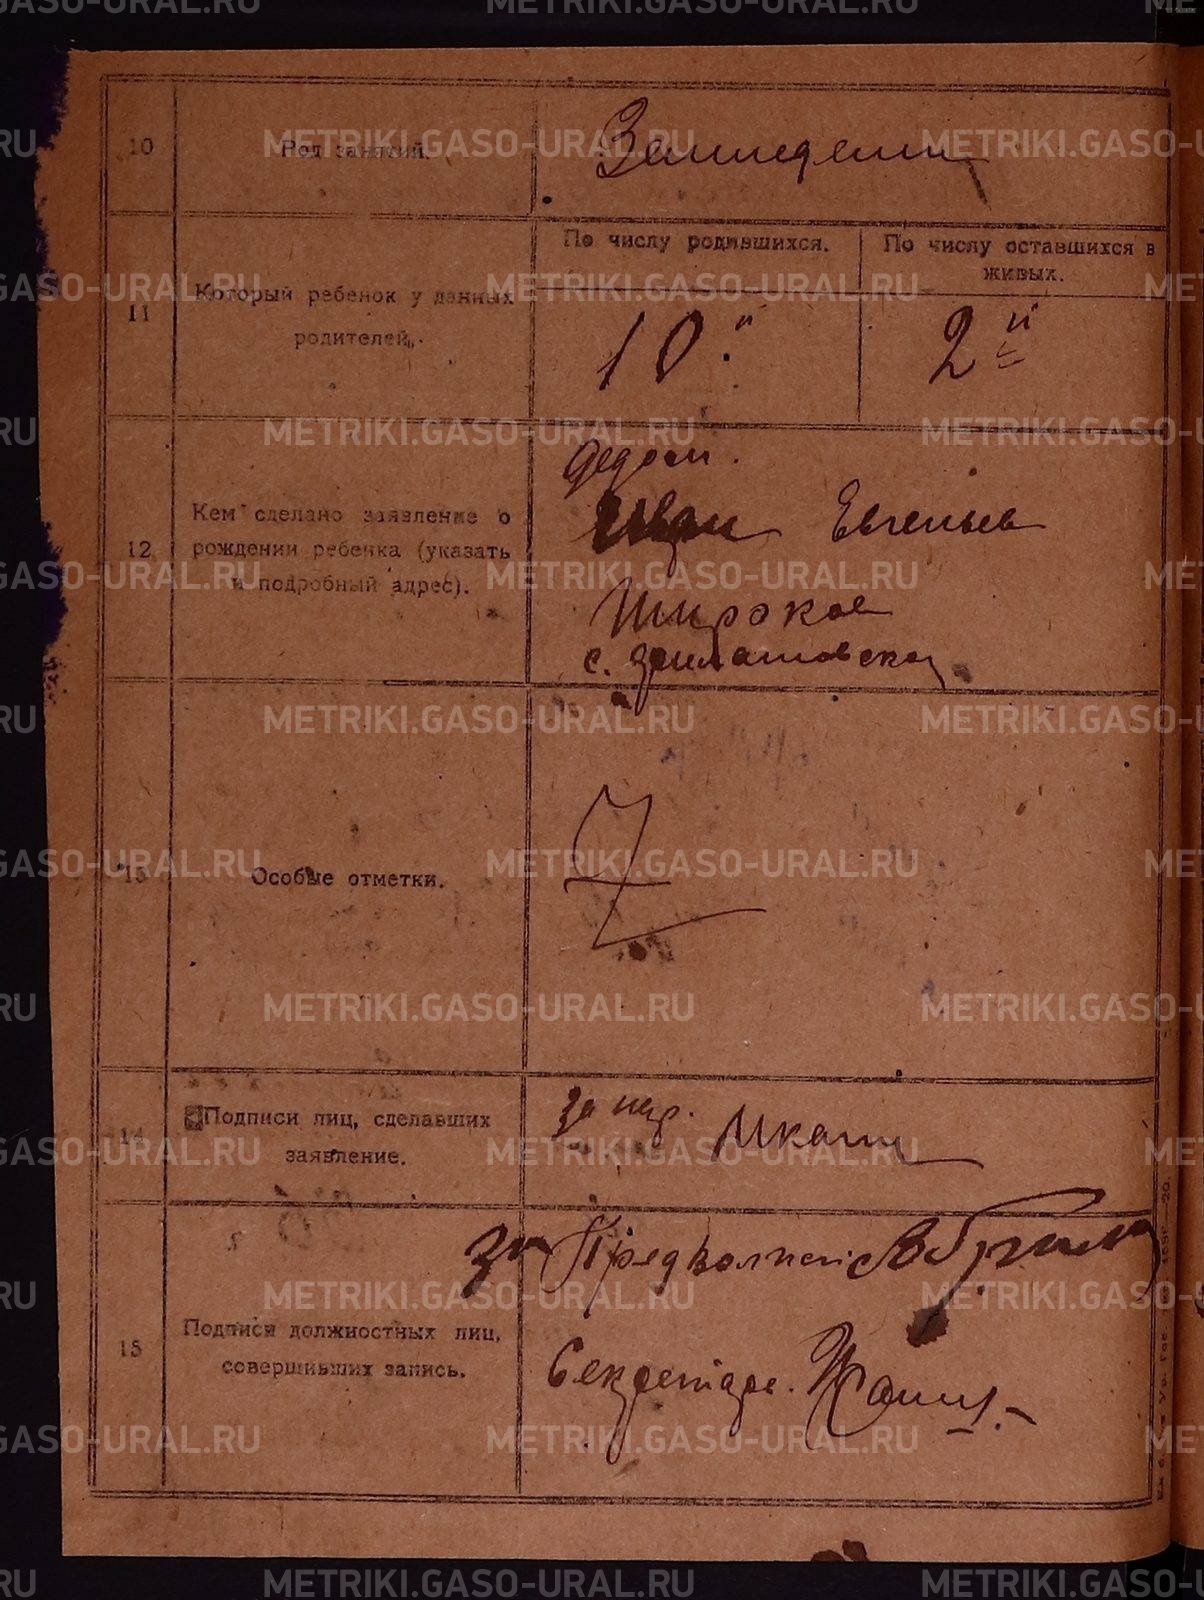 10
Род занятий.
11
Который ребенок у данных
родителей.
По числу родившихся.
По числу оставшихся в
живых.
10.й
2й
12
Кем сделано заявление о
рождении ребенка (указать
и подробный адрес).
дедом.
Иван Евгеньев
Широкое
с.
13
Особые отметки.
Z
14
Подписи лиц, сделавших
заявление.
за нер.
15
Подписи должностных лиц,
совершивших запись.
за Предволисп
Секретарь.
METRIKI.GASO-URAL.RU